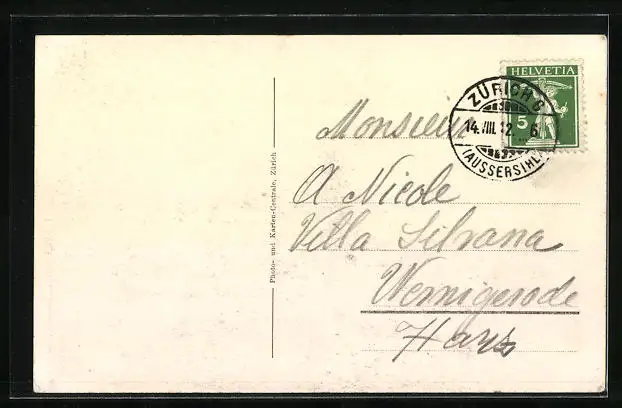 HELVETIA
5
ZÜRICH 6
14.VIII.12. 6
(AUSSERSIHL)
Monsieur
A Nicole
Villa Silvana
Wernigerode
Harz
Photo- und Karten-Centrale, Zürich